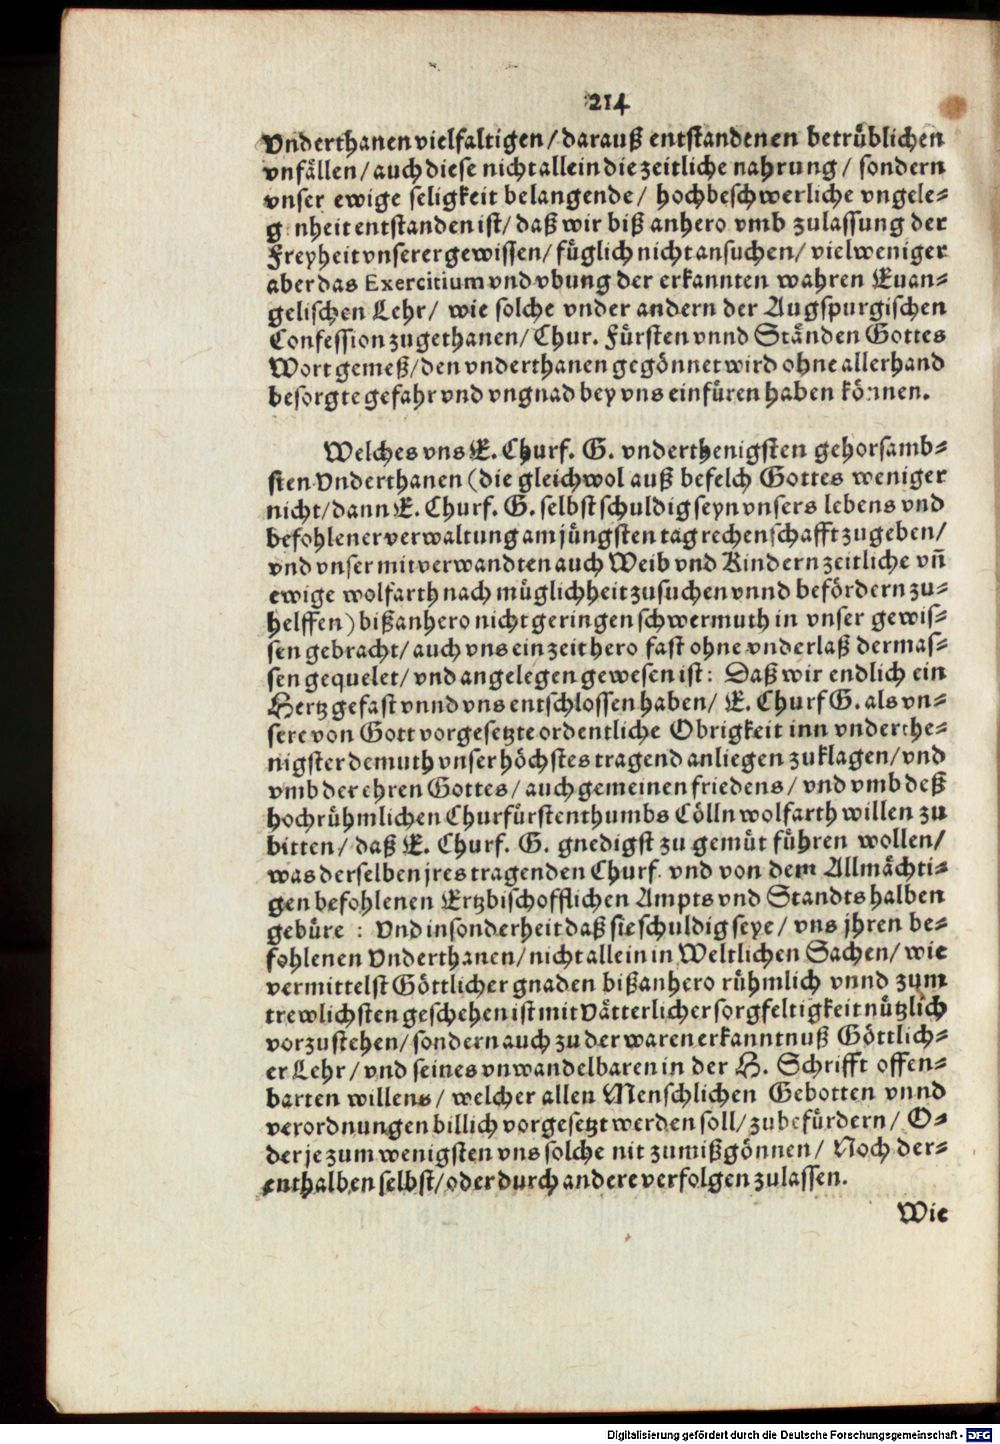 214
Vnderthanen vielfaltigen/ darauß entstandenen betrüblichen
vnfällen/ auch diese nicht allein die zeitliche nahrung/ sondern
vnser ewige seligkeit belangende/ hochbeschwerliche vngele-
g nheit entstanden ist/ daß wir biß anhero vmb zulassung der
Freyheit vnserer gewissen/ füglich nicht ansuchen/ viel weniger
aber das Exercitium vnd vbung der erkannten wahren Euan-
gelischen Lehr/ wie solche vnder andern der Augspurgischen
Confession zugethanen/ Chur. Fürsten vnnd Ständen Gottes
Wort gemeß/ den vnderthanen gegönnet wird ohne allerhand
besorgte gefahr vnd vngnad bey vns einfüren haben können.
Welches vns E. Churf. G. vnderthenigsten gehorsamb-
sten Vnderthanen (die gleichwol auß befelch Gottes weniger
nicht/ dann E. Churf. G. selbst schuldig seyn vnsers lebens vnd
befohlener verwaltung am jüngsten tag rechenschafft zugeben/
vnd vnser mitverwandten auch Weib vnd Kindern zeitliche vñ
ewige wolfarth nach müglichheit zusuchen vnnd befördern zu-
helffen) biß anhero nicht geringen schwermuth in vnser gewis-
sen gebracht/ auch vns ein zeit hero fast ohne vnderlaß dermas-
sen gequelet/ vnd angelegen gewesen ist: Daß wir endlich ein
Hertz gefast vnnd vns entschlossen haben/ E. Churf G. als vn-
sere von Gott vorgesetzte ordentliche Obrigkeit inn vnderthe-
nigster demuth vnser höchstes tragend anliegen zuklagen/ vnd
vmb der ehren Gottes/ auch gemeinen friedens/ vnd vmb deß
hochrühmlichen Churfürstenthumbs Cölln wolfarth willen zu
bitten/ daß E. Churf. G. gnedigst zu gemüt führen wollen/
was derselben jres tragenden Churf. vnd von dem Allmächti-
gen befohlenen Ertzbischofflichen Ampts vnd Standts halben
gebüre : Vnd insonderheit daß sie schuldig seye/ vns jhren be-
fohlenen Vnderthanen/ nicht allein in Weltlichen Sachen/ wie
vermittelst Göttlicher gnaden biß anhero rühmlich vnnd zum
trewlichsten geschehen ist mit Vätterlicher sorgfeltigkeit nützlich
vorzustehen/ sondern auch zu der waren erkanntnuß Göttlich-
er Lehr/ vnd seines vnwandelbaren in der H. Schrifft offen-
barten willens/ welcher allen Menschlichen Gebotten vnnd
verordnungen billich vorgesetzt werden soll/ zubefürdern/ O-
der je zum wenigsten vns solche nit zumißgönnen/ Noch der-
enthalben selbst/ oder durch andere verfolgen zulassen.
Wie
Digitalisierung gefördert durch die Deutsche Forschungsgemeinschaft - DFG